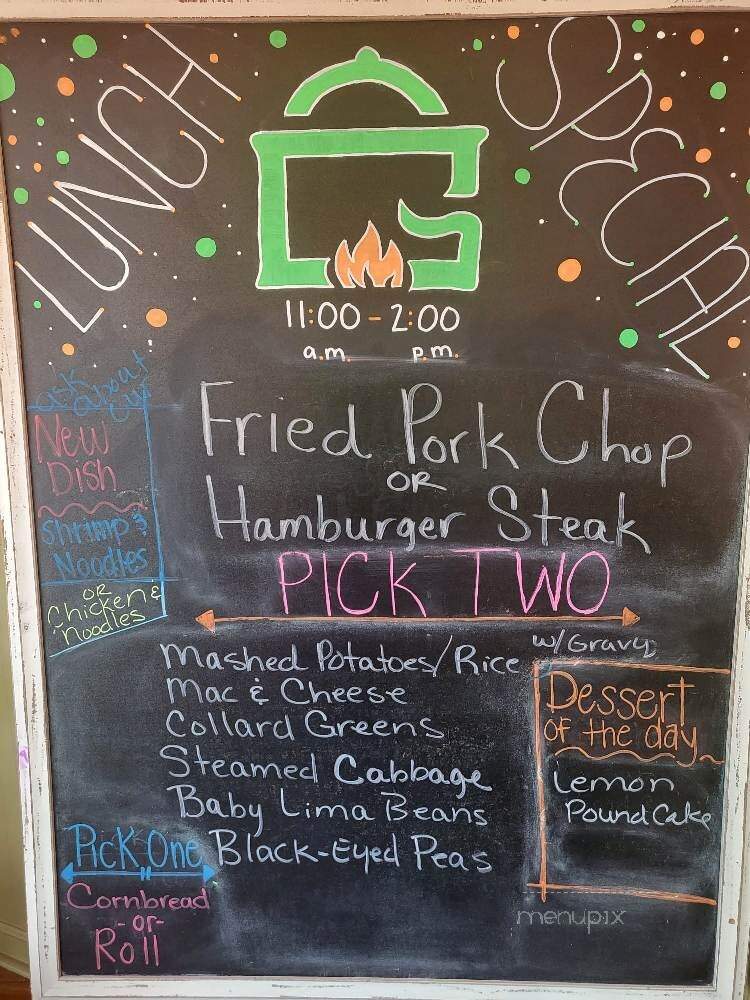 LUNCH SPECIAL
11:00 - 2:00
a.m. p.m.
ask
about
our
New
Dish
Shrimp &
Noodles
OR
Chicken &
Noodles
Fried Pork Chop
OR
Hamburger Steak
PICK TWO
Mashed Potatoes/Rice w/ Gravy
Mac & Cheese
Collard Greens
Steamed Cabbage
Baby Lima Beans
Black-Eyed Peas
Dessert
of the day
Lemon
Pound Cake
Pick One
Cornbread
- or -
Roll
menupix